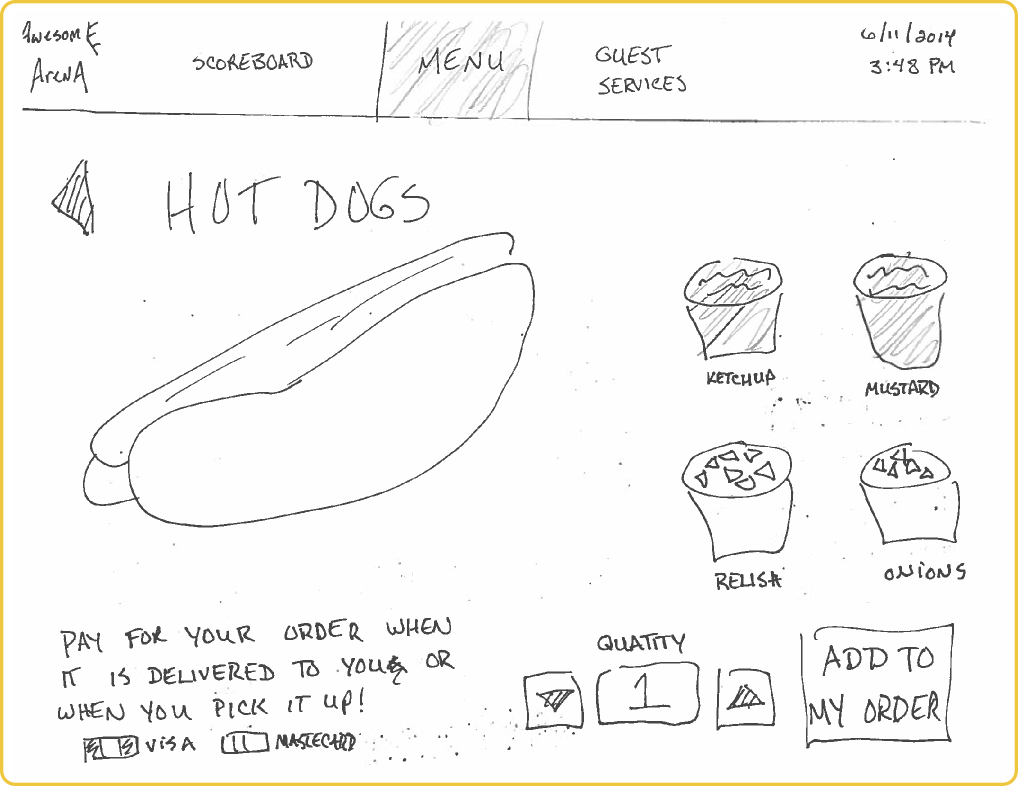 AwesomE
ArenA
SCOREBOARD
MENU
GUEST
SERVICES
6/11/2014
3:48 PM
HOT DOGS
KETCHUP
MUSTARD
RELISH
ONIONS
PAY FOR YOUR ORDER WHEN
IT IS DELIVERED TO YOU OR
WHEN YOU PICK IT UP!
VISA
MASTECARD
QUATITY
1
ADD TO
MY ORDER